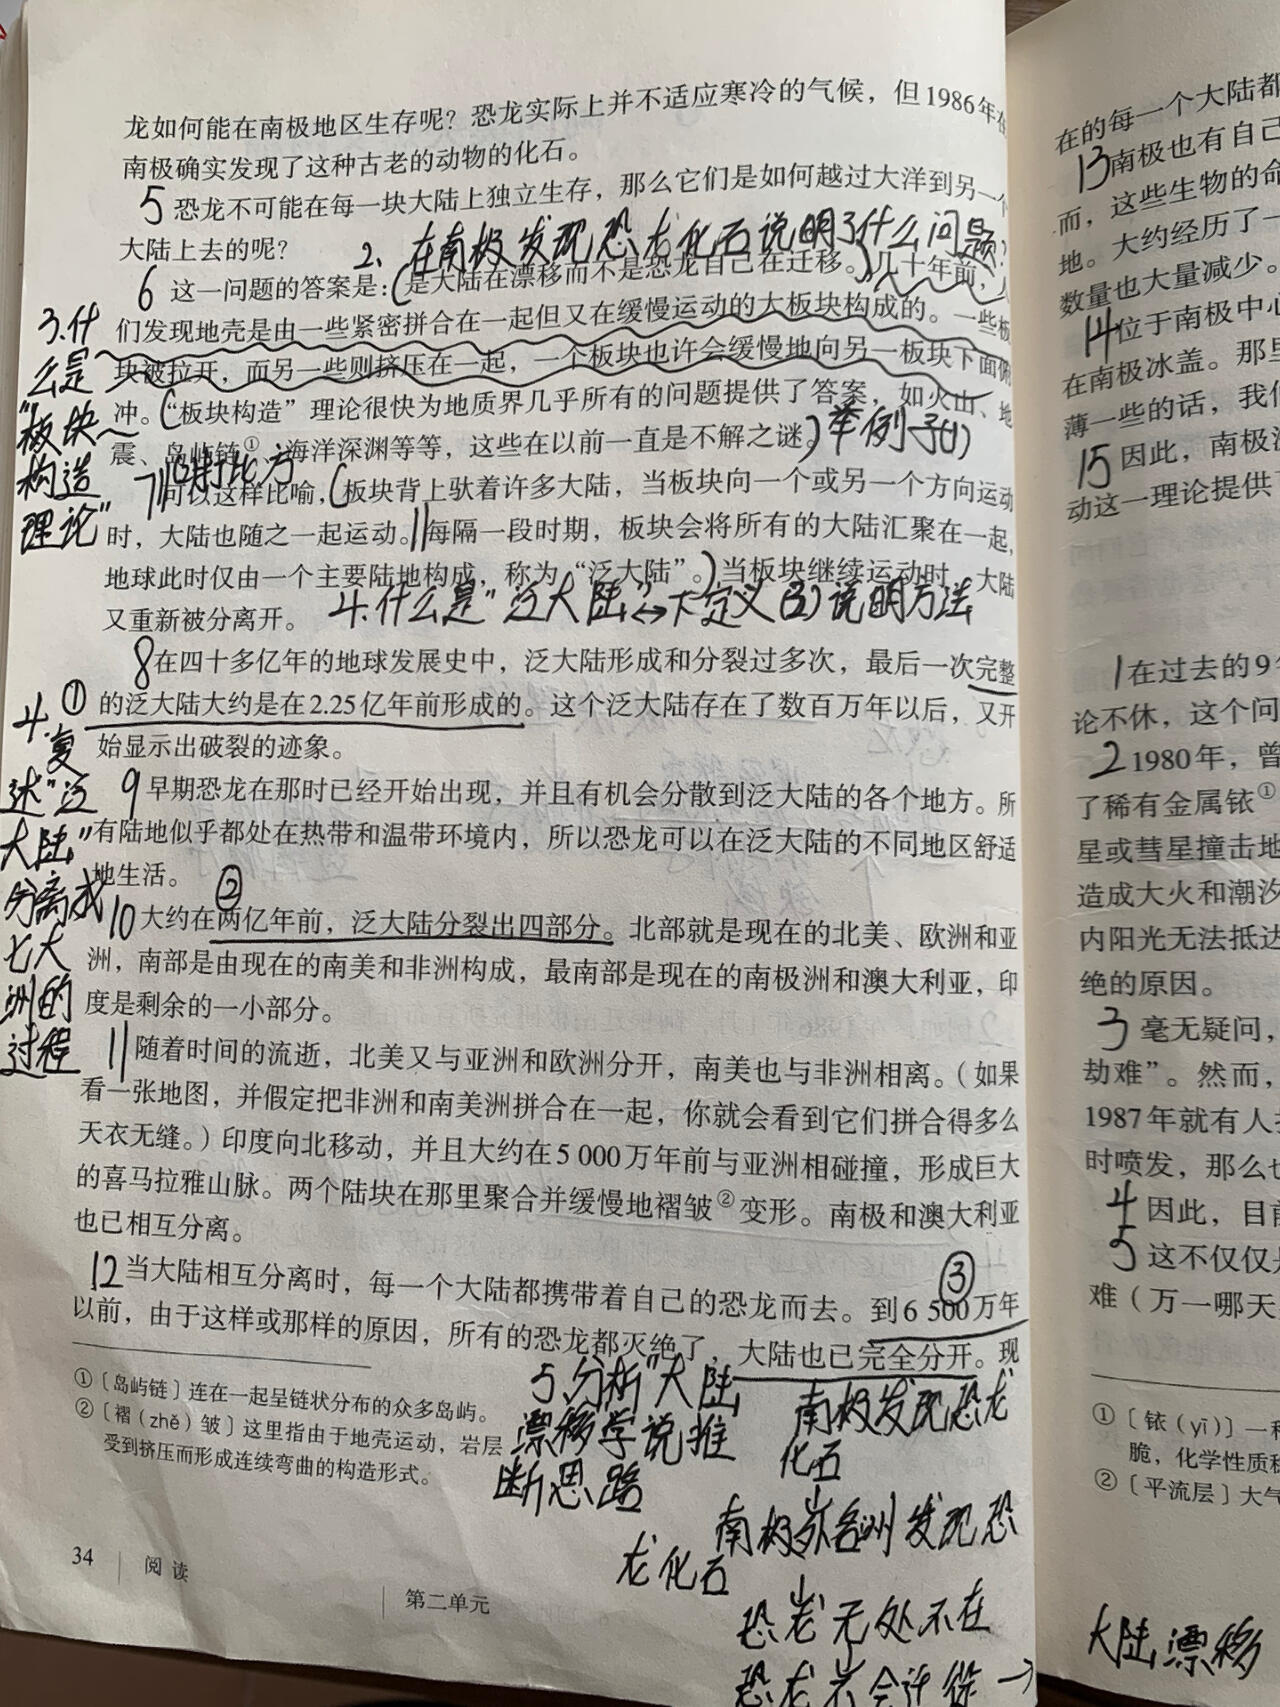 龙如何能在南极地区生存呢？恐龙实际上并不适应寒冷的气候，但1986年在
南极确实发现了这种古老的动物的化石。
5 恐龙不可能在每一块大陆上独立生存，那么它们是如何越过大洋到另一个
大陆上去的呢？
2、在南极发现恐龙化石说明了什么问题？
6 这一问题的答案是：(是大陆在漂移而不是恐龙自己在迁移。)几十年前，人
们发现地壳是由一些紧密拼合在一起但又在缓慢运动的大板块构成的。一些板
块被拉开，而另一些则挤压在一起，一个板块也许会缓慢地向另一板块下面俯
冲。(“板块构造”理论很快为地质界几乎所有的问题提供了答案，如火山、地
震、岛屿链①、海洋深渊等等，这些在以前一直是不解之谜。)举例子(1)
3.什
么是
“板块
构造
理论”
打比方
7 可以这样比喻，(板块背上驮着许多大陆，当板块向一个或另一个方向运动
时，大陆也随之一起运动。||每隔一段时期，板块会将所有的大陆汇聚在一起，
地球此时仅由一个主要陆地构成，称为“泛大陆”。)当板块继续运动时，大陆
又重新被分离开。
4.什么是“泛大陆”↔下定义(3)说明方法
8 在四十多亿年的地球发展史中，泛大陆形成和分裂过多次，最后一次完整
① 的泛大陆大约是在2.25亿年前形成的。这个泛大陆存在了数百万年以后，又开
始显示出破裂的迹象。
4.复
述“泛
大陆”
分离成
七大
洲的
过程
9 早期恐龙在那时已经开始出现，并且有机会分散到泛大陆的各个地方。所
有陆地似乎都处在热带和温带环境内，所以恐龙可以在泛大陆的不同地区舒适
地生活。
②
10 大约在两亿年前，泛大陆分裂出四部分。北部就是现在的北美、欧洲和亚
洲，南部是由现在的南美和非洲构成，最南部是现在的南极洲和澳大利亚，印
度是剩余的一小部分。
11 随着时间的流逝，北美又与亚洲和欧洲分开，南美也与非洲相离。（如果
看一张地图，并假定把非洲和南美洲拼合在一起，你就会看到它们拼合得多么
天衣无缝。）印度向北移动，并且大约在5 000万年前与亚洲相碰撞，形成巨大
的喜马拉雅山脉。两个陆块在那里聚合并缓慢地褶皱②变形。南极和澳大利亚
也已相互分离。
③
12 当大陆相互分离时，每一个大陆都携带着自己的恐龙而去。到6 500万年
以前，由于这样或那样的原因，所有的恐龙都灭绝了，大陆也已完全分开。现
①〔岛屿链〕连在一起呈链状分布的众多岛屿。
②〔褶（zhě）皱〕这里指由于地壳运动，岩层
受到挤压而形成连续弯曲的构造形式。
5 分析“大陆
漂移学说推
断思路
南极发现恐龙
化石
龙化石
恐龙无处不在
34
阅读
第二单元
在的每一个大陆都
13 南极也有自己
而，这些生物的命
地。大约经历了一
数量也大量减少。
14 位于南极中心
在南极冰盖。那里
薄一些的话，我们
15 因此，南极
动这一理论提供
1 在过去的9
论不休，这个问
2 1980年，曾
了稀有金属铱①
星或彗星撞击地
造成大火和潮汐
内阳光无法抵达
绝的原因。
3 毫无疑问，
劫难”。然而，
1987年就有人
时喷发，那么也
4 因此，目前
5 这不仅仅是
难（万一哪天
①〔铱（yī）〕一种
脆，化学性质稳
②〔平流层〕大气
大陆漂移